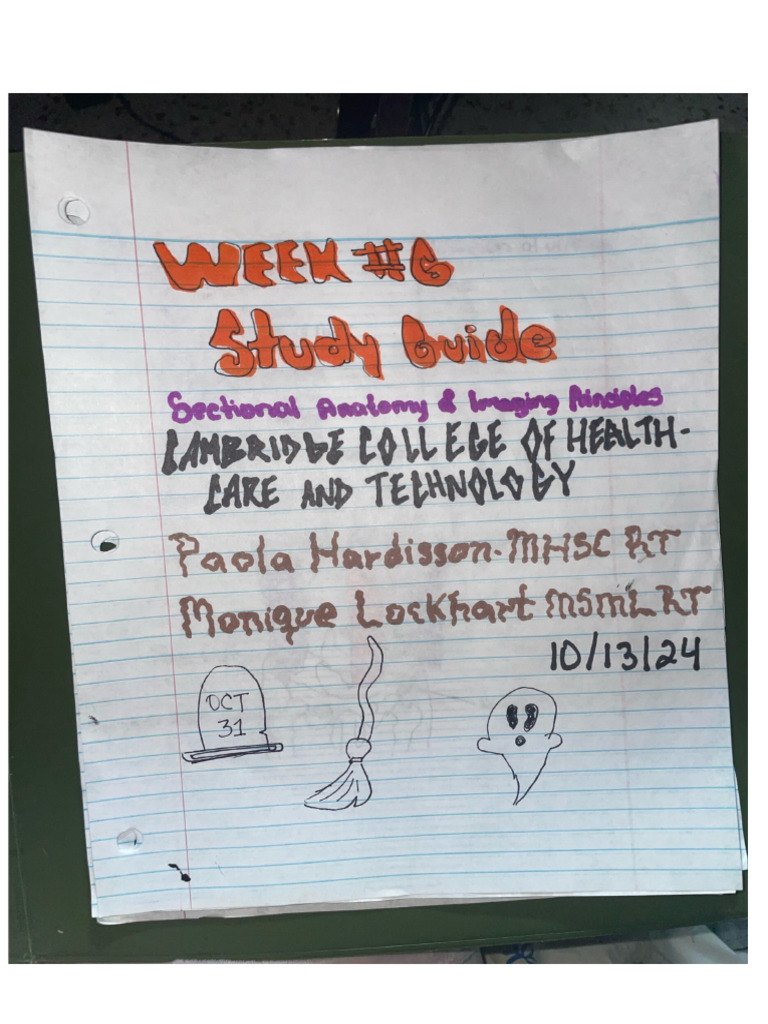 WEEK #6
Study Guide
Sectional Anatomy & Imaging Principles
CAMBRIDGE COLLEGE OF HEALTH-
CARE AND TECHNOLOGY
Paola Hardisson-MHSC RT
Monique Lockhart MSML RT
10/13/24
OCT
31